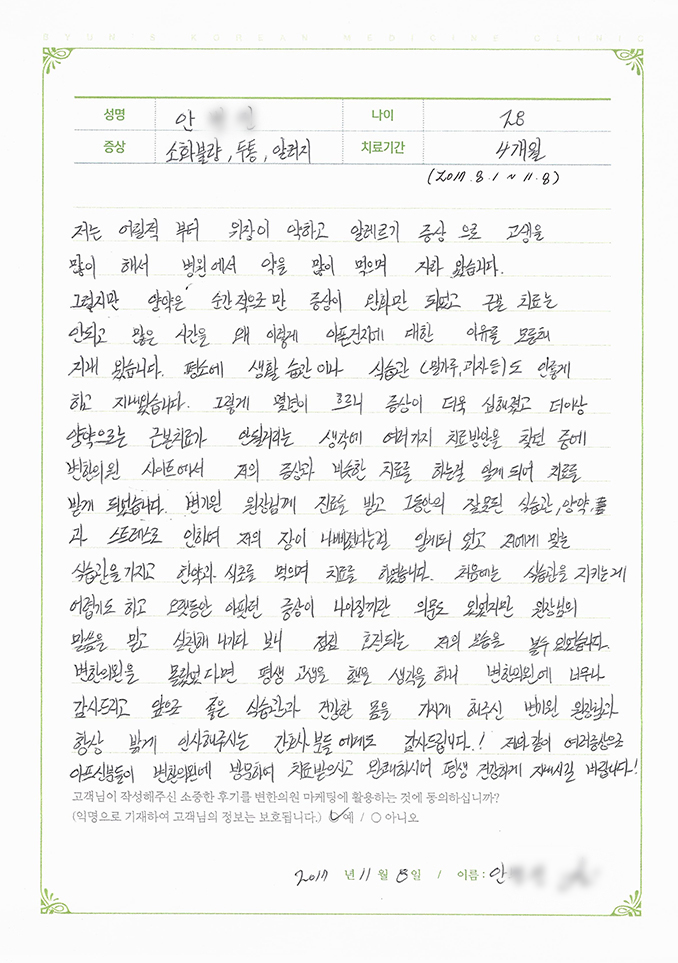 BYUN'S KOREAN MEDICINE CLINIC
성명 안 나이 28
증상 소화불량, 두통, 알러지 치료기간 4개월
(2017. 8. 1 ~ 11. 8)
저는 어릴적 부터 위장이 약하고 알레르기 증상 으로 고생을
많이 해서 병원에서 약을 많이 먹으며 자라 왔습니다.
그렇지만 양약은 순간적으로만 증상이 완화만 되었고 근본 치료는
안되고 많은 시간을 왜 이렇게 아픈건지에 대한 이유를 모른채
지내 왔습니다. 평소에 생활 습관이나 식습관 (밀가루, 과자등)도 안좋게
하고 지내왔습니다. 그렇게 몇년이 흐르니 증상이 더욱 심해졌고 더이상
양약으로는 근본치료가 안될거라는 생각에 여러가지 치료방안을 찾던 중에
변한의원 사이트에서 저의 증상과 비슷한 치료를 하는걸 알게 되어 치료를
받게 되었습니다. 변기원 원장님께 진료를 받고 그동안의 잘못된 식습관, 양약,
과 스트레스로 인하여 저의 장이 나빠졌다는걸 알게되 었고 저에게 맞는
식습관을 가지고 한약과 식초를 먹으며 치료를 하였습니다. 처음에는 식습관을 지키는게
어렵기도 하고 오랫동안 아팠던 증상이 나아질까란 의문도 있었지만 원장님의
말씀을 믿고 실천해 나가다 보니 점점 호전되는 저의 모습을 볼수 있었습니다.
변한의원을 몰랐었다면 평생 고생을 했을 생각을 하니 변한의원에 너무나
감사드리고 앞으로 좋은 식습관과 건강한 몸을 가지게 해주신 변기원 원장님과
항상 밝게 인사해주시는 간호사분들에게도 감사드립니다.! 저와같이 여러증상으로
아프신분들이 변한의원에 방문하여 치료받으시고 완쾌하시어 평생 건강하게 지내시길 바랍니다!
고객님이 작성해주신 소중한 후기를 변한의원 마케팅에 활용하는 것에 동의하십니까?
(익명으로 기재하여 고객님의 정보는 보호됩니다.) ○예 / ○아니오
2017 년 11 월 8 일 / 이름 : 안